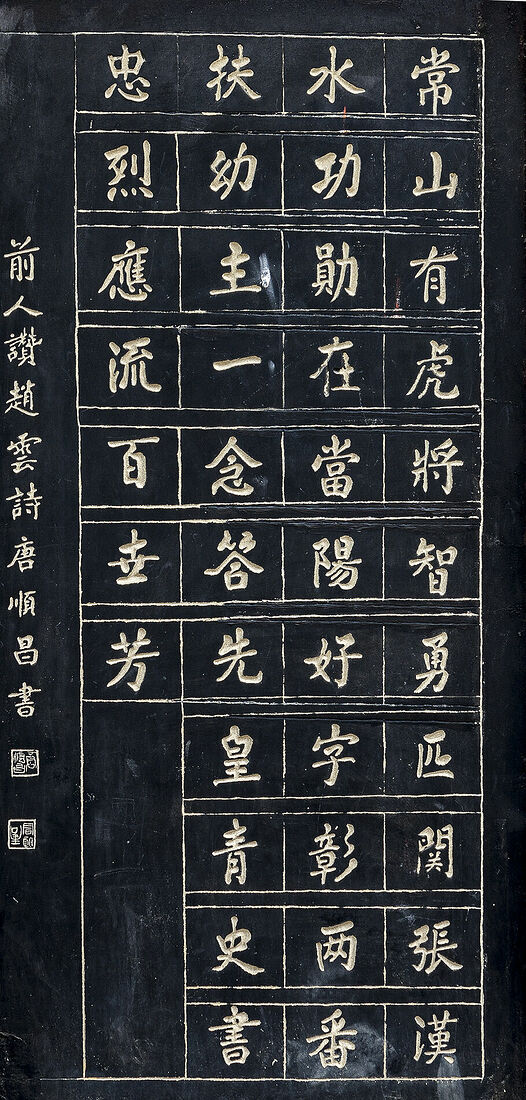 常山有虎將智勇匹関張漢
水功勛在當陽好字彰两番
扶幼主一念答先皇青史書
忠烈應流百世芳
前人讚趙雲詩唐順昌書